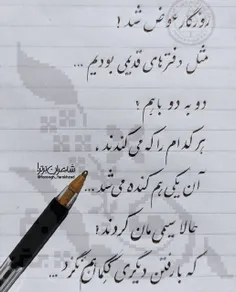 روزگار عوض شد !
مثل دفترهای قدیمی بودیم ...
دو به دو با هم ؛
هر کدام را که می‌کندند ،
آن یکی هم کنده می‌شد ...
حالا سیمی مان کردند ؛
که با رفتن دیگری ککمان هم نگزد ...